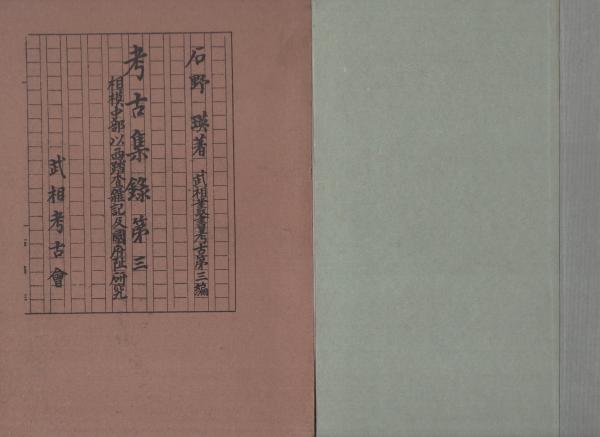 石野瑛著 武相叢書考古第三編
考古集錄第三
相模中部以西踏査雜記及國府阯研究
武相考古會